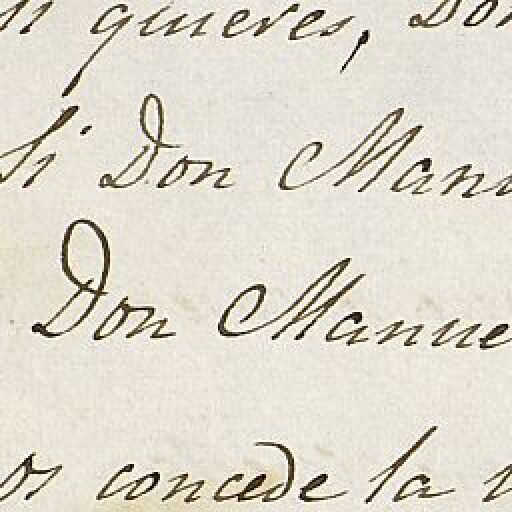 si quieres, Don
Si Don Manu
Don Manue
os concede la